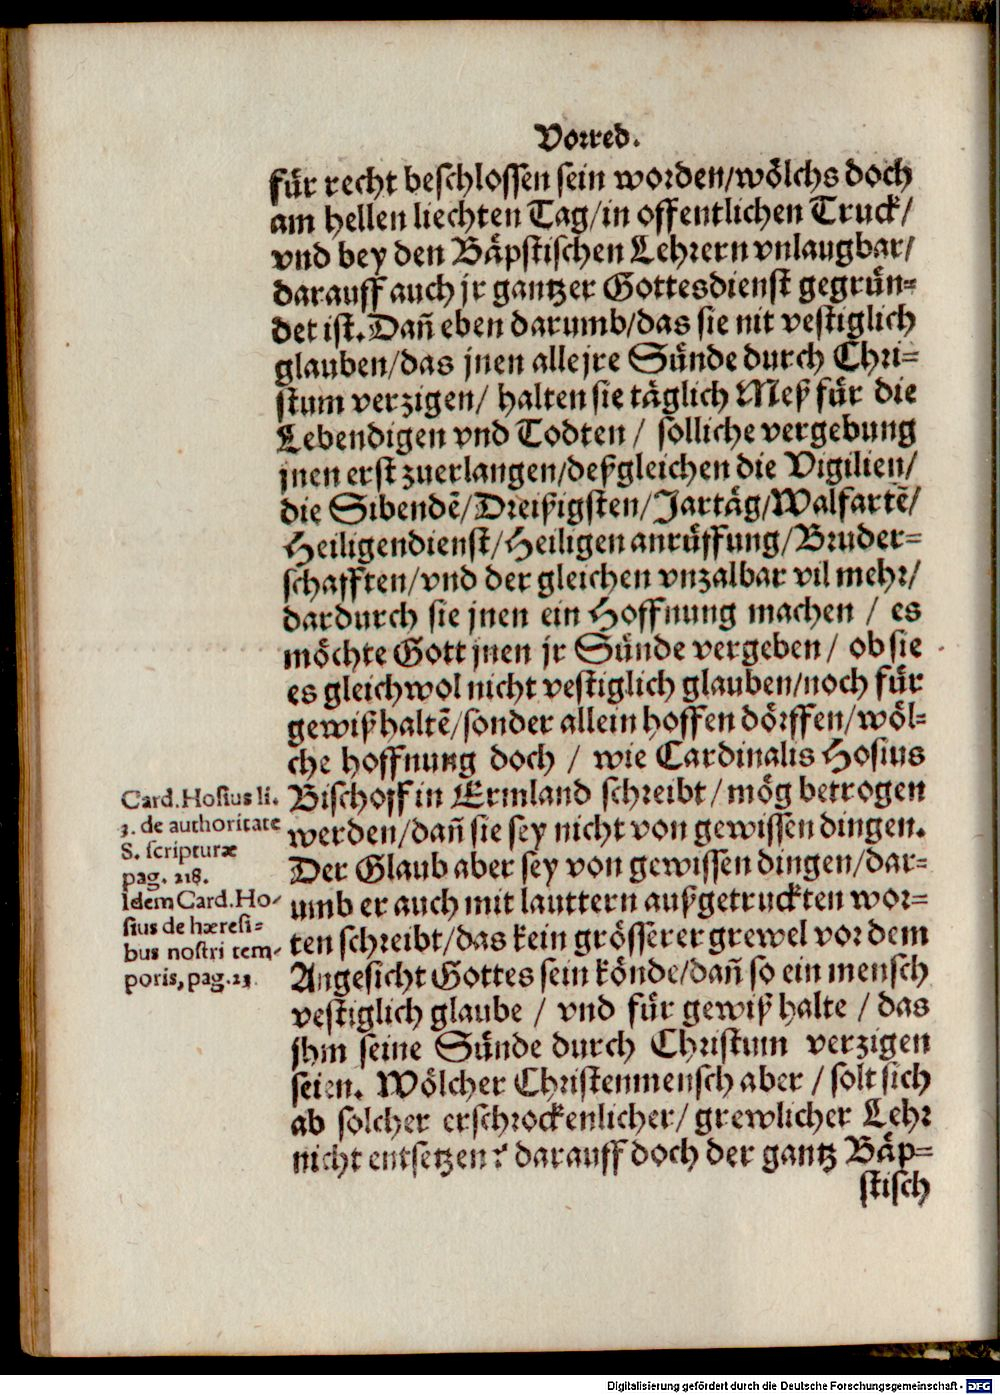 Vorred.
für recht beschlossen sein worden/wölchs doch
am hellen liechten Tag/in offentlichen Truck/
vnd bey den Bäpstischen Lehrern vnlaugbar/
darauff auch jr gantzer Gottesdienst gegrün-
det ist. Dañ eben darumb/das sie nit vestiglich
glauben/das jnen alle jre Sünde durch Chri-
stum verzigen/ halten sie täglich Meß für die
Lebendigen vnd Todten / solliche vergebung
jnen erst zuerlangen/deßgleichen die Vigilien/
die Sibendẽ/Dreißigsten/Jartäg/Walfartẽ/
Heiligendienst/Heiligen anrüffung/Bruder-
schafften/vnd der gleichen vnzalbar vil mehr/
dardurch sie jnen ein Hoffnung machen / es
möchte Gott jnen jr Sünde vergeben/ ob sie
es gleichwol nicht vestiglich glauben/noch für
gewiß haltẽ/sonder allein hoffen dörffen/wöl-
che hoffnung doch / wie Cardinalis Hosius
Bischoff in Ermland schreibt/mög betrogen
werden/dañ sie sey nicht von gewissen dingen.
Der Glaub aber sey von gewissen dingen/dar-
umb er auch mit lauttern außgetruckten wor-
ten schreibt/das kein grösserer grewel vor dem
Angesicht Gottes sein könde/dañ so ein mensch
vestiglich glaube / vnd für gewiß halte / das
jhm seine Sünde durch Christum verzigen
seien. Wölcher Christenmensch aber / solt sich
ab solcher erschrockenlicher/ grewlicher Lehr
nicht entsetzen? darauff doch der gantz Bäp-
stisch
Card. Hosius li.
3. de authoritate
S. scripturæ
pag. 218.
Idem Card. Ho-
sius de hæresi-
bus nostri tem-
poris, pag. 23
Digitalisierung gefördert durch die Deutsche Forschungsgemeinschaft - DFG